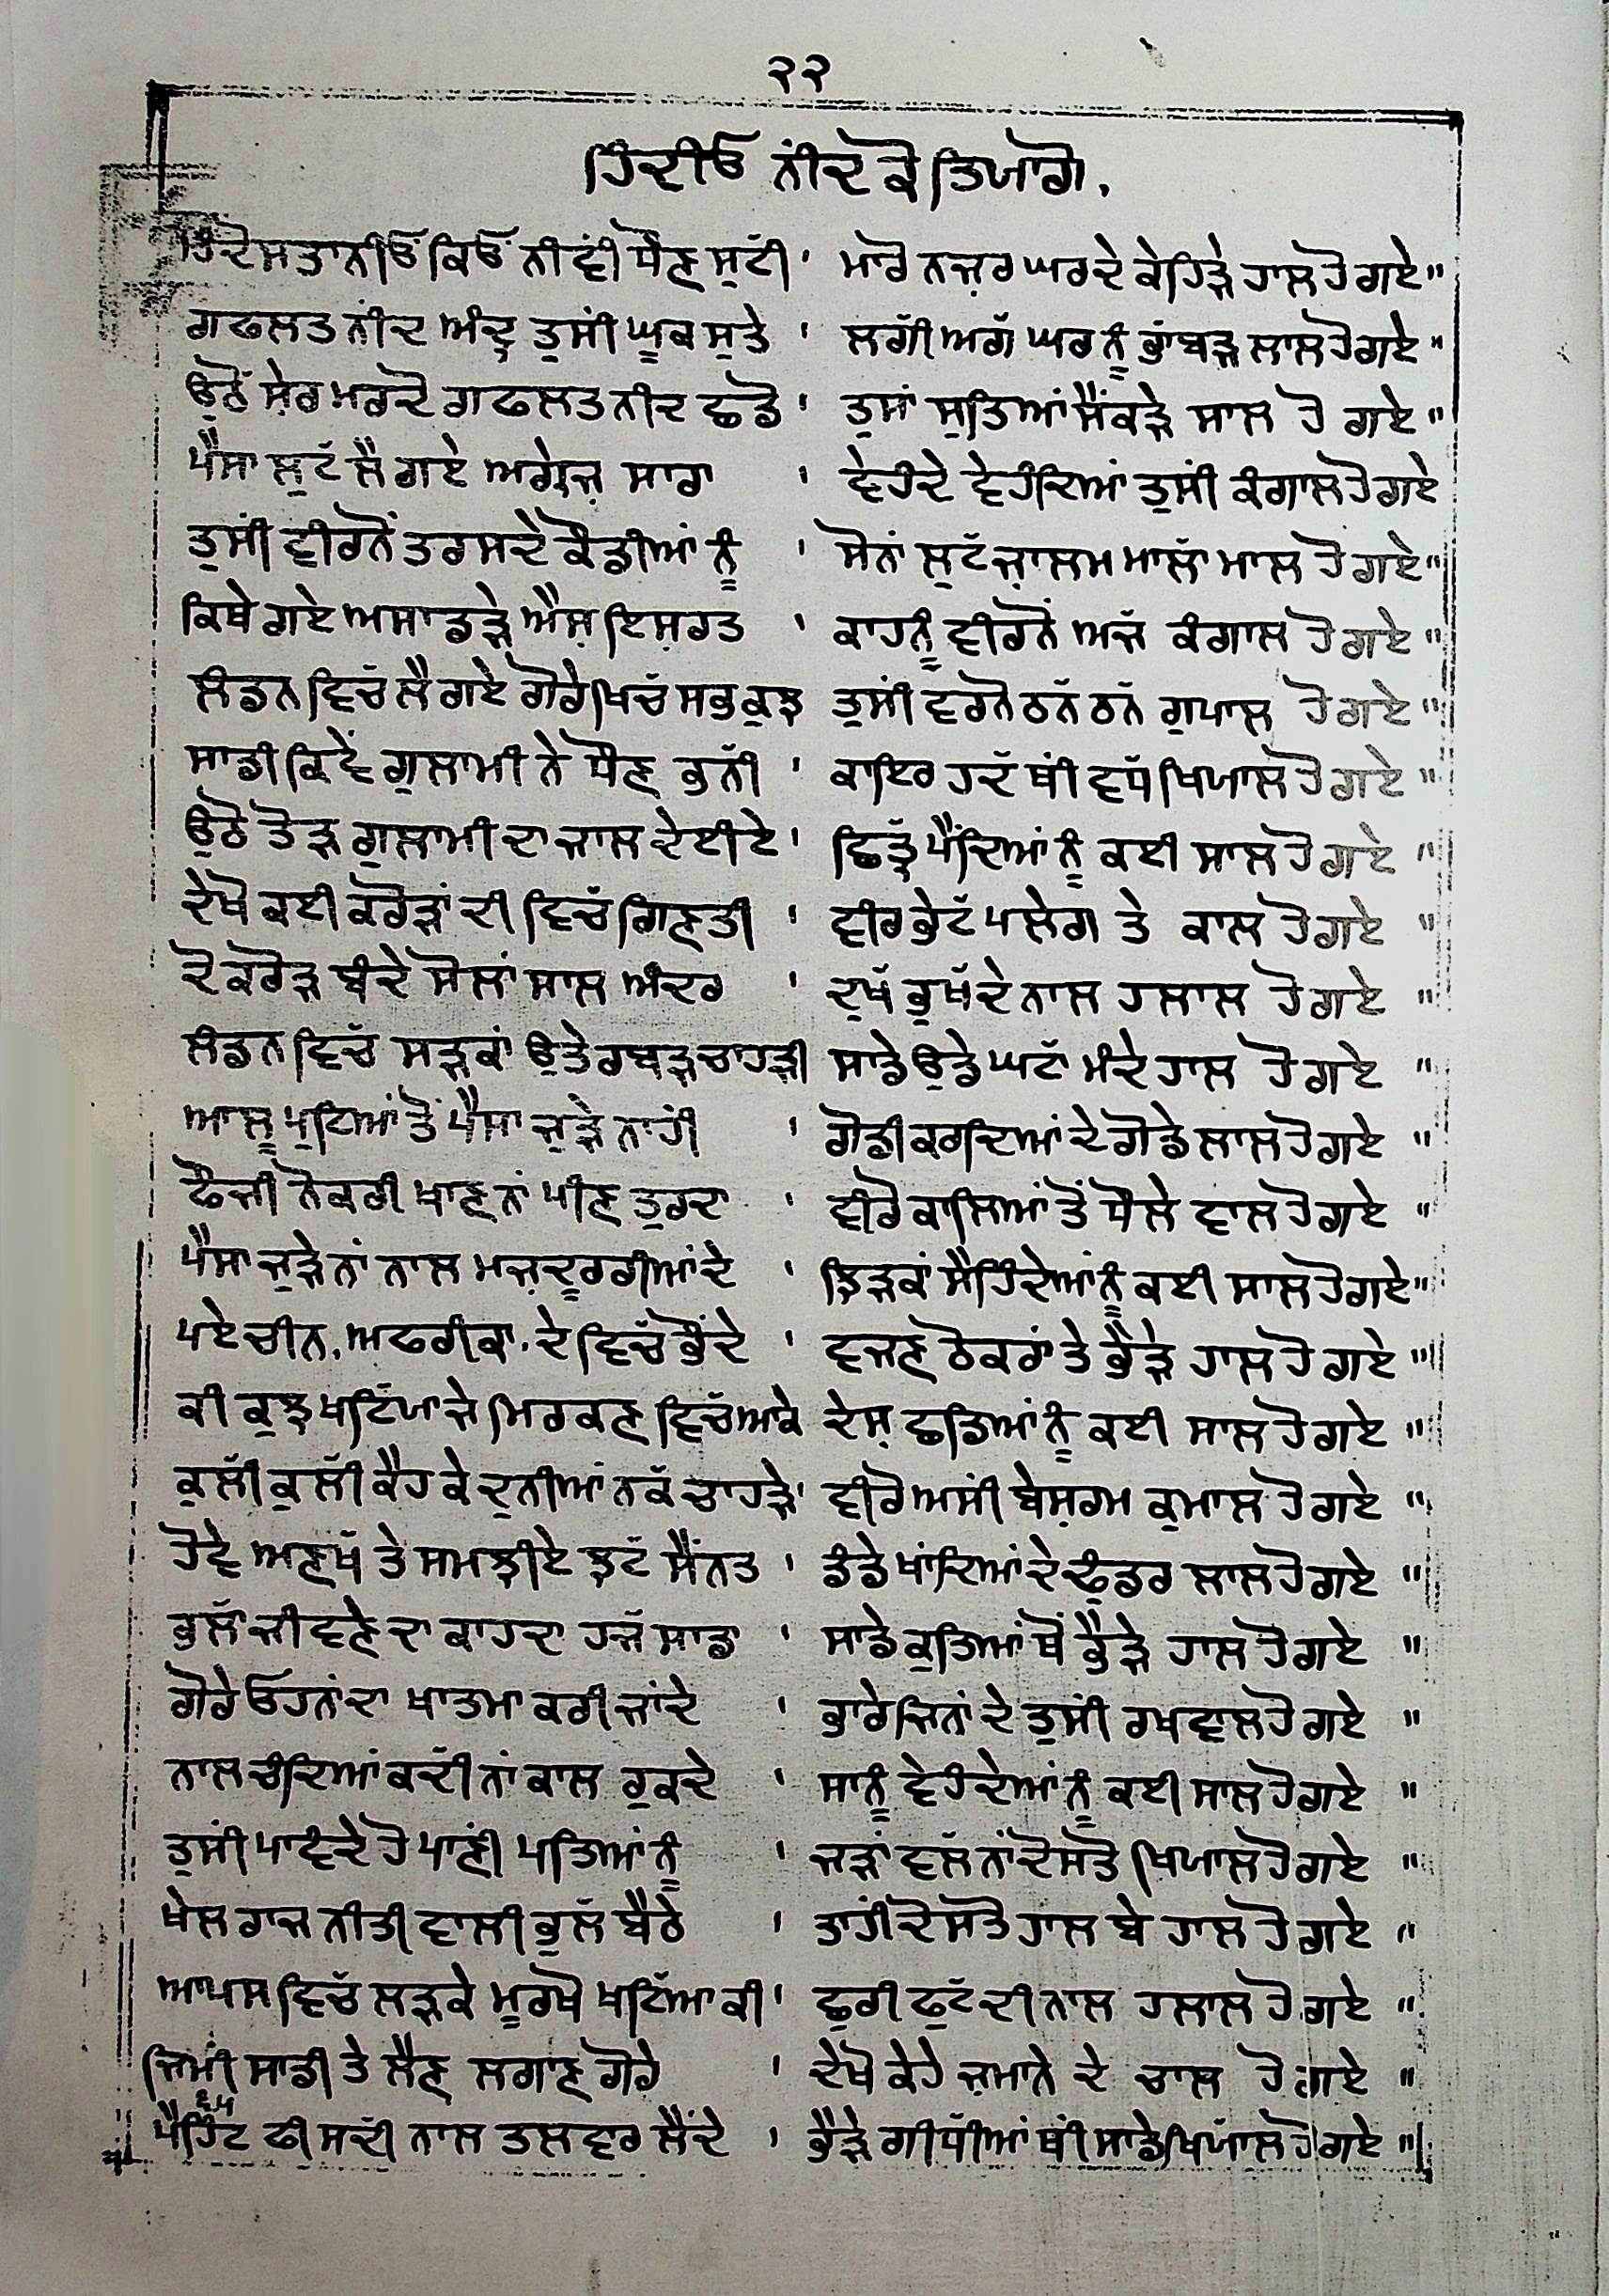 ੨੨
ਹਿੰਦੀਓ ਨੀਂਦ ਕੋ ਤਿਯਾਗੋ.
ਹਿੰਦੋਸਤਾਨੀਓਂ ਕਿਓਂ ਨੀਵੀਂ ਧੌਣ ਸੁੱਟੀ ' ਮਾਰੋ ਨਜ਼ਰ ਘਰਦੇ ਕੇਹਿੜੇ ਹਾਲ ਹੋ ਗਏ"
ਗਫਲਤ ਨੀਂਦ ਅੰਦ੍ਰ ਤੁਸੀਂ ਘੂਕ ਸੁਤੇ ' ਲਗੀ ਅਗੱ ਘਰ ਨੂੰ ਭਾਂਬੜ ਲਾਲ ਹੋਗਏ"
ਉਠੋਂ ਸ਼ੇਰ ਮਰਦੋ ਗਫਲਤ ਨੀਦ ਛਡੋ ' ਤੁਸਾਂ ਸੁਤਿਆਂ ਸੈਂਕੜੇ ਸਾਲ ਹੋ ਗਏ"
ਪੈਸਾ ਲੁਟੱ ਲੈ ਗਏ ਅਗ੍ਰੇਜ਼ ਸਾਰਾ ' ਵੇਹੰਦੇ ਵੇਹੰਦਿਆਂ ਤੁਸੀਂ ਕੰਗਾਲ ਹੋਗਏ
ਤੁਸੀਂ ਵੀਰਨੋਂ ਤਰਸਦੇ ਕੌਡੀਆਂ ਨੂੰ ' ਸੋਨਾਂ ਲੁਟੱ ਜ਼ਾਲਮ ਮਾਲਾਂ ਮਾਲ ਹੋ ਗਏ"
ਕਿਥੇ ਗਏ ਅਸਾਡੜੇ ਐਸ਼ ਇਸ਼ਰਤ ' ਕਾਹਨੂੰ ਵੀਰਨੋਂ ਅਜੱ ਕੰਗਾਲ ਹੋ ਗਏ"
ਲੰਡਨ ਵਿਚੱ ਲੈ ਗਏ ਗੋਰੇ ਖਿਚੱ ਸਭ ਕੁਝ ਤੁਸੀਂ ਵਰਨੋ ਠਨੱ ਠਨੱ ਗੁਪਾਲ ਹੋ ਗਏ"
ਸਾਡੀ ਕਿਵੇਂ ਗੁਲਾਮੀ ਨੇ ਧੌਣ ਭੁਨੀੱ ' ਕਾਇਰ ਹਦੱ ਥੀਂ ਵਧੱ ਖਿਯਾਲ ਹੋ ਗਏ"
ਉਠੋ ਤੋੜ ਗੁਲਾਮੀ ਦਾ ਜਾਲ ਦੇਈਏ ' ਛਿਤ੍ਰੱ ਪੈਂਦਿਆਂ ਨੂੰ ਕਈ ਸਾਲ ਹੋ ਗਏ"
ਦੇਖੋ ਕਈ ਕਰੋੜਾਂ ਦੀ ਵਿਚੱ ਗਿਣਤੀ ' ਵੀਰ ਭੇਟੱ ਪਲੇਗ ਤੇ ਕਾਲ ਹੋ ਗਏ"
ਦੋ ਕਰੋੜ ਬੰਦੇ ਸੋਲਾਂ ਸਾਲ ਅੰਦਰ ' ਦੁਖੱ ਭੁਖੱ ਦੇ ਨਾਲ ਹਲਾਲ ਹੋ ਗਏ"
ਲੰਡਨ ਵਿਚੱ ਸੜਕਾਂ ਉਤੇ ਰਬੜ ਚਾਹੜੀ ਸਾਡੇ ਉਡੇ ਘਟਾੱ ਮੰਦੇ ਹਾਲ ਹੋ ਗਏ"
ਆਲੂ ਪੁਟਿਆਂ ਤੋਂ ਪੈਸਾ ਜੁੜੇ ਨਾਹੀਂ ' ਗੋਡੀ ਕਰਦਿਆਂ ਦੇ ਗੋਡੇ ਲਾਲ ਹੋਗਏ"
ਫੌਜੀ ਨੌਕਰੀ ਖਾਣ ਨਾਂ ਪੀਣ ਤੁਰਦਾ ' ਵੀਰੋ ਕਾਲਿਆਂ ਤੋਂ ਧੌਲੇ ਵਾਲ ਹੋਗਏ"
ਪੈਸਾ ਜੁੜੇ ਨਾਂ ਨਾਲ ਮਜ਼ਦੂਰਰੀਆਂ ਦੇ ' ਝਿੜਕਾਂ ਸੈਹਿੰਦੇਆਂ ਨੂੰ ਕਈ ਸਾਲ ਹੋਗਏ"
ਪਏ ਚੀਨ, ਅਫਰੀਕਾ, ਦੇ ਵਿਚੱ ਭੌਂਦੇ ' ਵਜਣ ਠੋਕਰਾਂ ਤੇ ਭੈੜੇ ਹਾਲ ਹੋ ਗਏ"
ਕੀ ਕੁਝ ਖਟਿੱਯਾ ਜੇ ਮਿਰਕਣ ਵਿਚੱ ਆਕੇ ਦੇਸ਼ ਛਡਿਆਂ ਨੂੰ ਕਈ ਸਾਲ ਹੋ ਗਏ"
ਕੁਲੀੱ ਕੁਲੀੱ ਕੈਹ ਕੇ ਦੁਨੀਆਂ ਨਕੱ ਚਾਹੜੇ ' ਵੀਰੋ ਅਸੀਂ ਬੇਸ਼ਰਮ ਕੁਮਾਲ ਹੋ ਗਏ"
ਹੋਵੇ ਅਣਖੱ ਤੇ ਸਮਝੀਏ ਝਟੱ ਸੈਂਨਤ ' ਡੰਡੇ ਖਾਂਦਿਆਂ ਦੇ ਢੂੰਡਰ ਲਾਲ ਹੋਗਏ"
ਭੁਲਾੱ ਜੀਵਣੇ ਦਾ ਕਾਹਦਾ ਹਜੱ ਸਾਡਾ ' ਸਾਡੇ ਕੁਤਿਆਂ ਥੋਂ ਭੈੜੇ ਹਾਲ ਹੋਗਏ"
ਗੋਰੇ ਓਹਨਾਂਦਾ ਖਾਤਮਾ ਕਰੀ ਜਾਂਦੇ ' ਭਾਰੇ ਜਿਨਾਂ ਦੇ ਤੁਸੀਂ ਰਖਵਾਲ ਹੋ ਗਏ"
ਨਾਲ ਚੰਦਿਆਂ ਕਦੀੱ ਨਾਂ ਕਾਲ ਰੁਕਦੇ ' ਸਾਨੂੰ ਵੇਹੰਦੇਆਂ ਨੂੰ ਕਈ ਸਾਲ ਹੋਗਏ"
ਤੁਸੀਂ ਪਾਵੰਦੇ ਹੋ ਪਾਣੀਂ ਪਤਿਆਂ ਨੂੰ ' ਜੜਾਂ ਵਲੱ ਨਾਂ ਦੋਸਤੋ ਖਿਯਾਲ ਹੋ ਗਏ"
ਖੇਲ ਰਾਜਨੀਤੀ ਵਾਲੀ ਭੁਲੱ ਬੈਠੇ ' ਤਾਹੀਂ ਦੋਸਤੋ ਹਾਲ ਬੇ ਹਾਲ ਹੋ ਗਏ"
ਆਪਸ ਵਿਚੱ ਲੜਕੇ ਮੂਰਖੋ ਖਟਿੱਆ ਕੀ ' ਛੁਰੀ ਫੁਟੱ ਦੀ ਨਾਲ ਹਲਾਲ ਹੋ ਗਏ"
ਜ਼ਿਮੀਂ ਸਾਡੀ ਤੇ ਲੈਣ ਲਗਾਣ ਗੋਰੇ ' ਦੇਖੋ ਕੇਹੇ ਜ਼ਮਾਨੇ ਦੇ ਚਾਲ ਹੋ ਗਏ"
੬੫
ਪੈਹਿੰਟ ਫੀ ਸਦੀ ਨਾਲ ਤਲਵਾਰ ਲੈਂਦੇ ' ਭੈੜੇ ਗੀਧੀਆਂ ਥੀਂ ਸਾਡੇ ਖਿਯਾਲ ਹੋ ਗਏ"